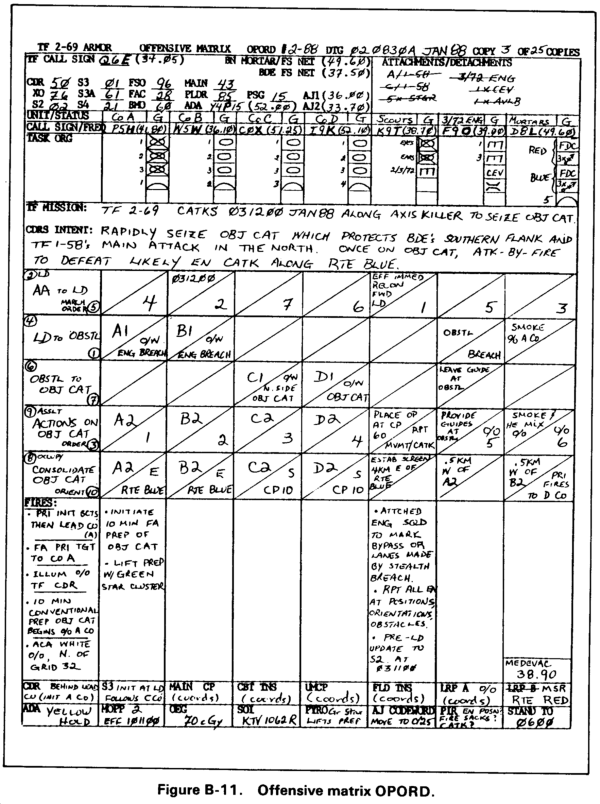 TF 2-69 ARMOR OFFENSIVE MATRIX OPORD #2-88 DTG 020830A JAN 88 COPY 3 OF 25 COPIES
TF CALL SIGN/ Q6E (37.05) BN MORTAR/FS NET (49.60) ATTACHMENTS/DETACHMENTS
BDE FS NET (37.50) A/1-58 3/72 ENG
CDR 50 S3 01 FSO 96 MAIN 43 C/1-58 1xCEV
XO 76 S3A 61 FAC 28 PLDR 85 PSG 15 AJ1 (36.00) 5x STGR 1xAVLB
S2 02 S4 21 BMO 60 ADA Y4P15 (52.00) AJ2 (33.70)
UNIT/STATUS Co A G Co B G Co C G Co D G SCOUTS G 3/72 ENG G MORTARS G
CALL SIGN/FREQ P5H (41.80) W5W (36.10) C0X (51.25) I9K (52.10) K9T (38.70) F9O (39.00) D8L (49.60)
TASK ORG 1 1 1 1 GRS 1 FDC
2 2 2 2 2 RED
3 3 3 3 2/3/72 3 CEV BLUE FDC
5
TF MISSION: TF 2-69 CATKS 031200 JAN 88 ALONG AXIS KILLER TO SEIZE OBJ CAT.
CDRS INTENT: RAPIDLY SEIZE OBJ CAT WHICH PROTECTS BDE's SOUTHERN FLANK AND
TF 1-58's MAIN ATTACK IN THE NORTH. ONCE ON OBJ CAT, ATK-BY-FIRE
TO DEFEAT LIKELY EN CATK ALONG RTE BLUE.
② LD 031200 EFF IMMED
AA TO LD RECON
MARCH FWD
ORDER ⑤ 4 2 7 6 LD 1 5 3
④ A1 B1 OBSTL SMOKE
LD TO OBSTL O/W O/W 96 A CO.
① ENG BREACH ENG BREACH BREACH
⑥ C1 O/W D1 LEAVE GUIDE
OBSTL TO N. SIDE O/W AT
OBJ CAT ⑦ OBJ CAT OBJ CAT OBSTL
⑨ ASSLT A2 B2 C2 D2 PLACE OP PROVIDE SMOKE/
ACTIONS ON AT CP RPT GUIDES HE MIX
OBJ CAT 60 AT O/O O/O
ORDER ③ 1 2 3 4 MVMT/CATK OBSTL 5 6
⑧ OCCUPY A2 E B2 E C2 S D2 S ESTAB SCREEN .5KM .5KM
CONSOLIDATE 4KM E OF W OF W OF PRI
OBJ CAT RTE A2 B2 FIRES
ORIENT ⑩ RTE BLUE RTE BLUE CP 10 CP 10 BLUE TO D CO
FIRES:
• PRI INIT BCTS • INITIATE • ATTCHED
THEN LEAD CO 10 MIN FA ENG SQD
(A) PREP OF TO MARK
• FA PRI TGT OBJ CAT BYPASS OR
TO CO A • LIFT PREP LANES MADE
• ILLUM O/O W/GREEN BY STEALTH
TF CDR STAR CLUSTER BREACH.
• 10 MIN • RPT ALL EN
CONVENTIONAL AT POSITIONS,
PREP OBJ CAT ORIENTATIONS,
BEGINS O/O A CO OBSTACLES.
• ACA WHITE • PRE-LD
O/O, N. OF UPDATE TO
GRID 32 S2 AT MEDEVAC
031100 38.90
CDR BEHIND LEAD S3 INIT AT LD MAIN CP CBT TNS UMCP FLD TNS LRP A O/O LRP B MSR
CO (INIT A CO) FOLLOWS C CO (coords) (coords) (coords) (coords) (coords) RTE RED
ADA YELLOW MOPP 2 OEG SOI PYRO Gr Star AJ CODEWORD PIR EN POSN? STAND TO
HOLD EFF 101100 70 cGy KTV 1062 R LIFTS PREP MOVE TO 025 FIRE SACKS? CATK? 0600
Figure B-11. Offensive matrix OPORD.